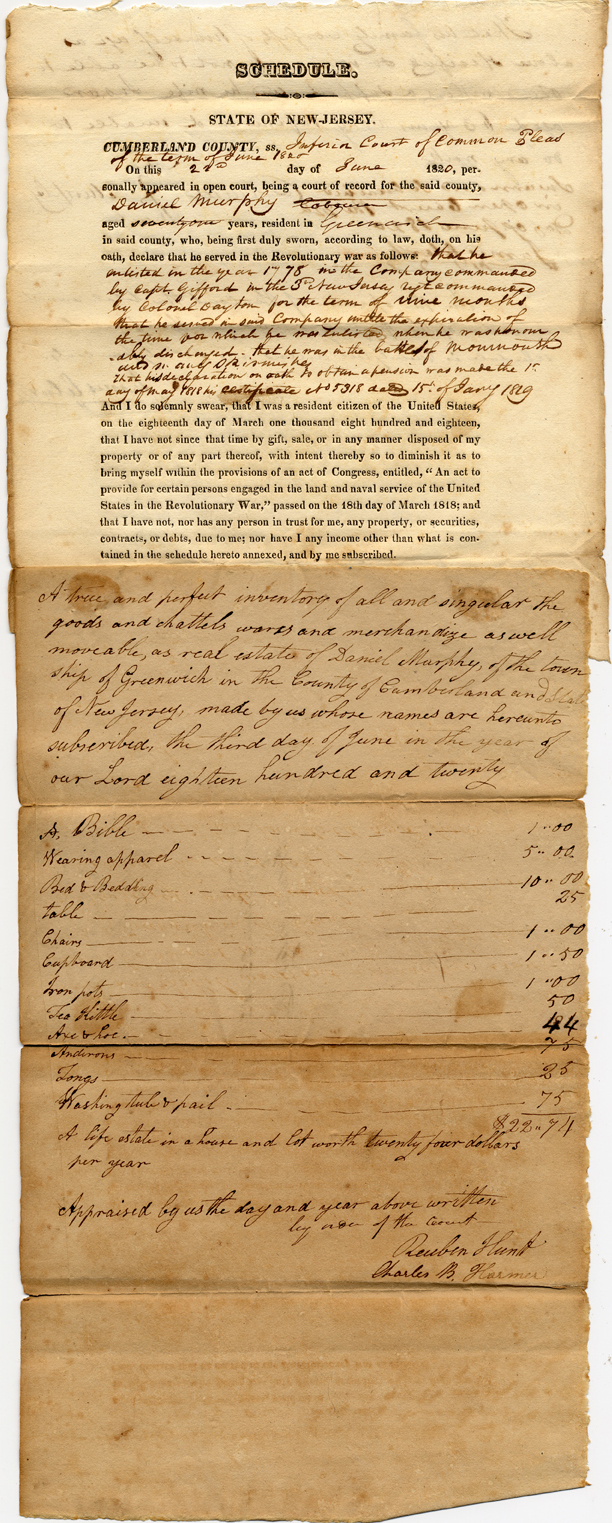 SCHEDULE.
STATE OF NEW-JERSEY.
CUMBERLAND COUNTY, ss, Inferior Court of Common Pleas
of the term of June 1820
On this 2nd day of June 1820, per-
sonally appeared in open court, being a court of record for the said county,
Daniel Murphy
aged seventy one years, resident in Greenwich
in said county, who, being first duly sworn, according to law, doth, on his
oath, declare that he served in the Revolutionary war as follows: that he
enlisted in the year 1778 in the Company commanded
by Capt Gifford in the 3d New Jersey regt commanded
by Colonel Dayton for the term of nine months
that he served in said Company untill the expiration of
the time for which he was enlisted, when he was honour
ably discharged. that he was in the battle of Monmouth
that his declaration on oath to obtain a pension was made the 1st
day of May 1818 his certificate No 5918 dated 15th of Jany 1819
And I do solemnly swear, that I was a resident citizen of the United States,
on the eighteenth day of March one thousand eight hundred and eighteen,
that I have not since that time by gift, sale, or in any manner disposed of my
property or of any part thereof, with intent thereby so to diminish it as to
bring myself within the provisions of an act of Congress, entitled, “ An act to
provide for certain persons engaged in the land and naval service of the United
States in the Revolutionary War,” passed on the 18th day of March 1818; and
that I have not, nor has any person in trust for me, any property, or securities,
contracts, or debts, due to me; nor have I any income other than what is con-
tained in the schedule hereto annexed, and by me subscribed.
A true and perfect inventory of all and singular the
goods and chattels wares and merchandize as well
moveable, as real estate of Daniel Murphy, of the town
ship of Greenwich in the County of Cumberland and State
of New Jersey, made by us whose names are hereunto
subscribed, the third day of June in the year of
our Lord eighteen hundred and twenty
A Bible 1..00
Wearing apparel 5..00
Bed & Bedding 10..00
table 25
Chairs 1..00
Cupboard 1..50
Iron pots 1..00
Tea Kittle 50
Axe & hoe 44
Andirons 75
Tongs 25
Washing tub & pail 75
$22..74
A life estate in a house and lot worth twenty four dollars
per year
Appraised by us the day and year above written
by order of the court
Reuben Hunt
Charles B. Harmer